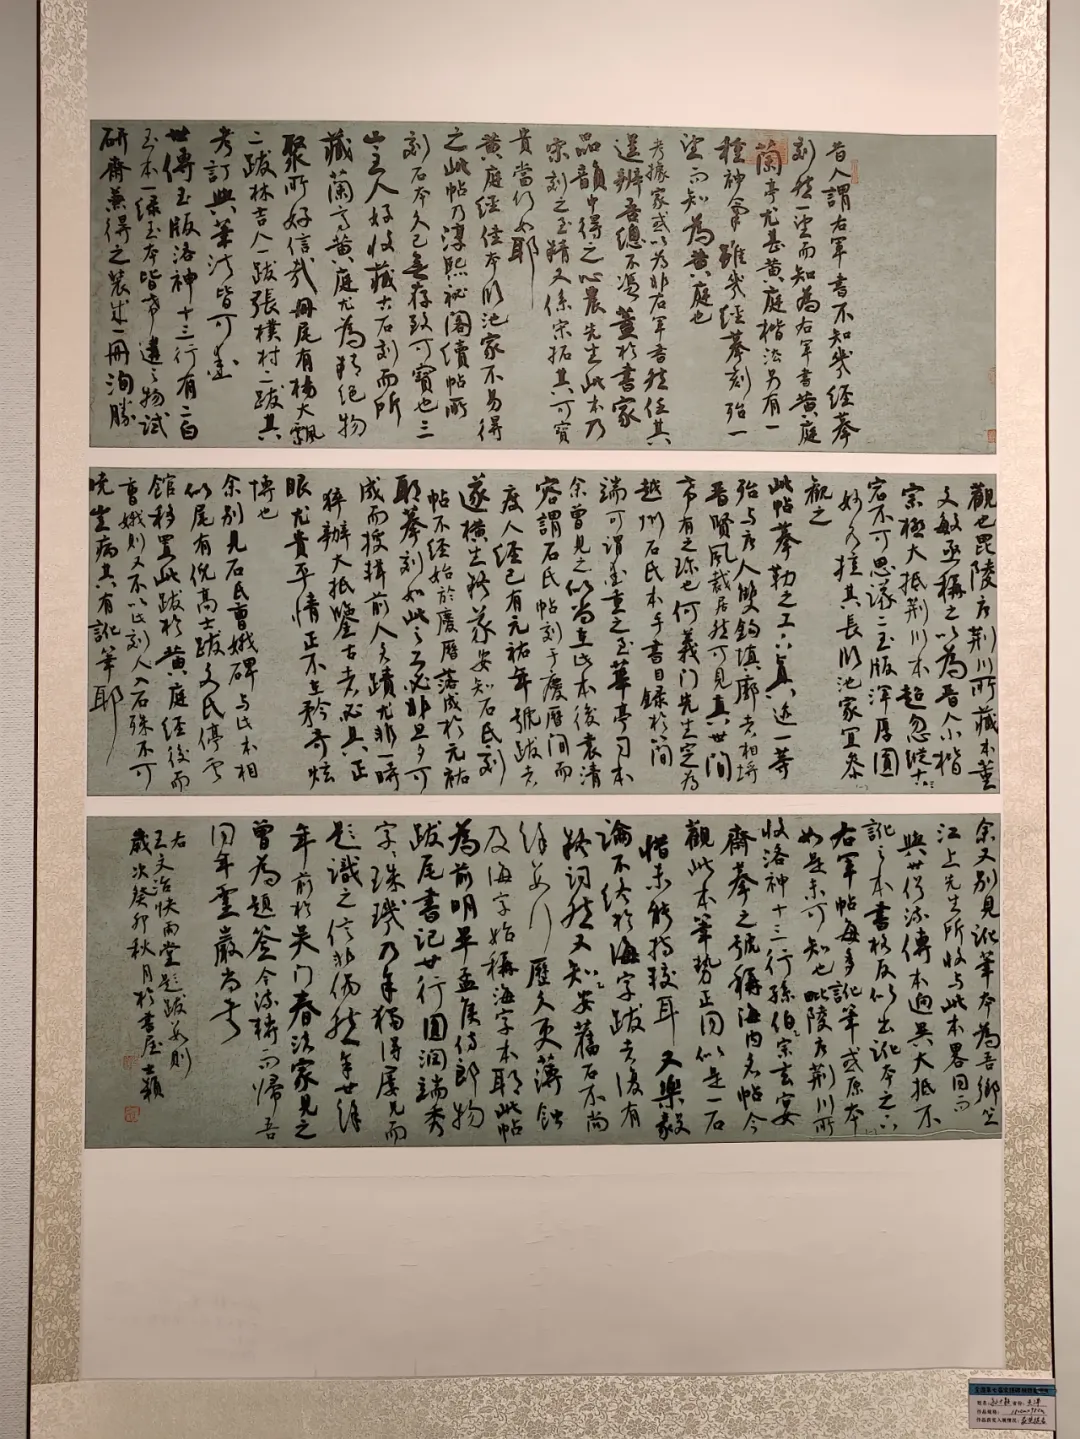 昔人謂右軍書不知幾經摹
刻然一望而知為右軍書黄庭
蘭亭尤甚黄庭楷法另有一
種神氣雖幾經摹刻殆一
望而知為黄庭也
考據家或以為非右軍書然任其
逞辨吾總不馮董於書家
品韻中得之心農先生此本乃
宋刻之至精又係宋拓其可寶
貴當何如耶
黄庭經佳本臨池家不易得
之此帖乃淳熙祕閣續帖所
刻石本久已無存致可寶也三
山主人好收藏古石刻而所
藏蘭亭黄庭尤為精絕物
聚所好信哉冊尾有楊大瓢
二跋林吉人一跋張樸村二跋其
考訂與筆法皆可重
世傳玉版洛神十三行有二白
玉本一緑玉本皆市遺之物試
研齋兼得之装成一冊洵勝
觀也毘陵唐荆川所藏本董
文敏亟稱之以為晉人小楷
宗極大抵荆川本超忽縱古
宕不可思議二玉版渾厚圓
妙各擅其長臨池家宜參
觀之
此帖摹勒之工真迹一等
殆與唐人雙鉤填廓者相埒
晋賢風裁居然可見真世間
希有之珎也何義門先生定為
越州石氏本手書目録於間
端可謂重之至華亭司本
余曾見之似尚在此本後袁清
容謂石氏帖刻于慶曆間而
度人經已有元祐年號跋者
遂橫生疑義安知石氏刻
帖不經始於慶曆落成於元祐
耶摹刻如此之工必非旦夕可
成而搜緝前人名蹟尤非一時
猝辦大抵鑒古者必具正
眼尤貴平情正不在矜奇炫
博也
余別見石氏曹娥碑与此本相
似尾有倪高士跋文氏停雲
館移置此跋於黄庭經後而
曹娥則又不以此刻入石殊不可
曉生病其有訛筆耶
余又別見訛筆本為吾鄉笪
江上先生所收与此本畧同而
與世俗流傳本迥異大抵不
訛之本書格反似出訛本之下
右軍帖每多訛筆或原本
如是未可知也毗陵唐荆川所
收洛神十三行孫伯宗玄宴
齋摹之號稱海内名帖今
觀此本筆勢正同似是一石
惜未能持較耳 又樂毅
論不終於海字跋者復有
疑詞然又知安舊石不尚
餘五行歷久更薄蝕
及海字始稱海字本耶此帖
為前明早孟侯侍郎物
跋尾書記廿行圓潤端秀
字字珠璣乃年獨得屢見而
題識之信非偶然年廿餘
年前於吴门春浤家見之
曾為題簽今流轉而歸吾
同年雲巖尚書
右王文治快雨堂題跋五則
歲次癸卯秋月於書屋士穎